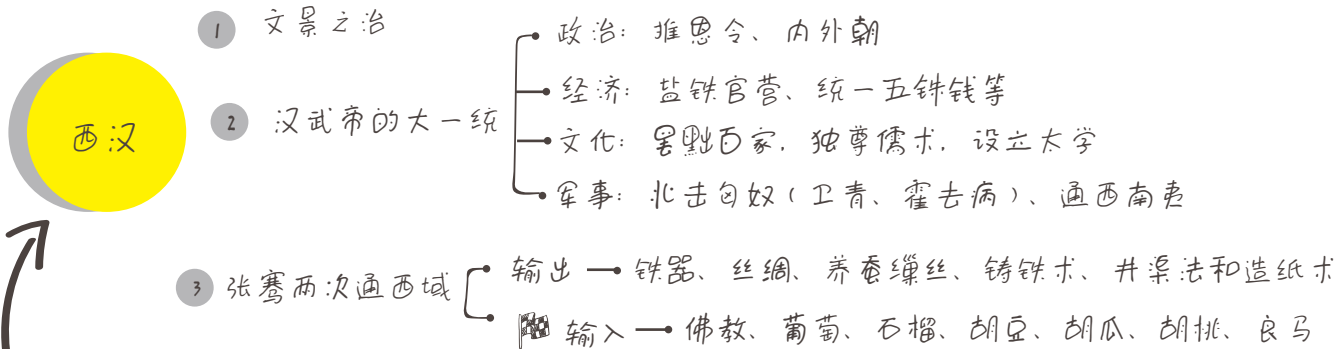 1 文景之治
政治：推恩令、内外朝
经济：盐铁官营、统一五铢钱等
西汉
2 汉武帝的大一统
文化：罢黜百家，独尊儒术，设立太学
军事：北击匈奴（卫青、霍去病）、通西南夷
3 张骞两次通西域
输出 铁器、丝绸、养蚕缫丝、铸铁术、井渠法和造纸术
输入 佛教、葡萄、石榴、胡豆、胡瓜、胡桃、良马